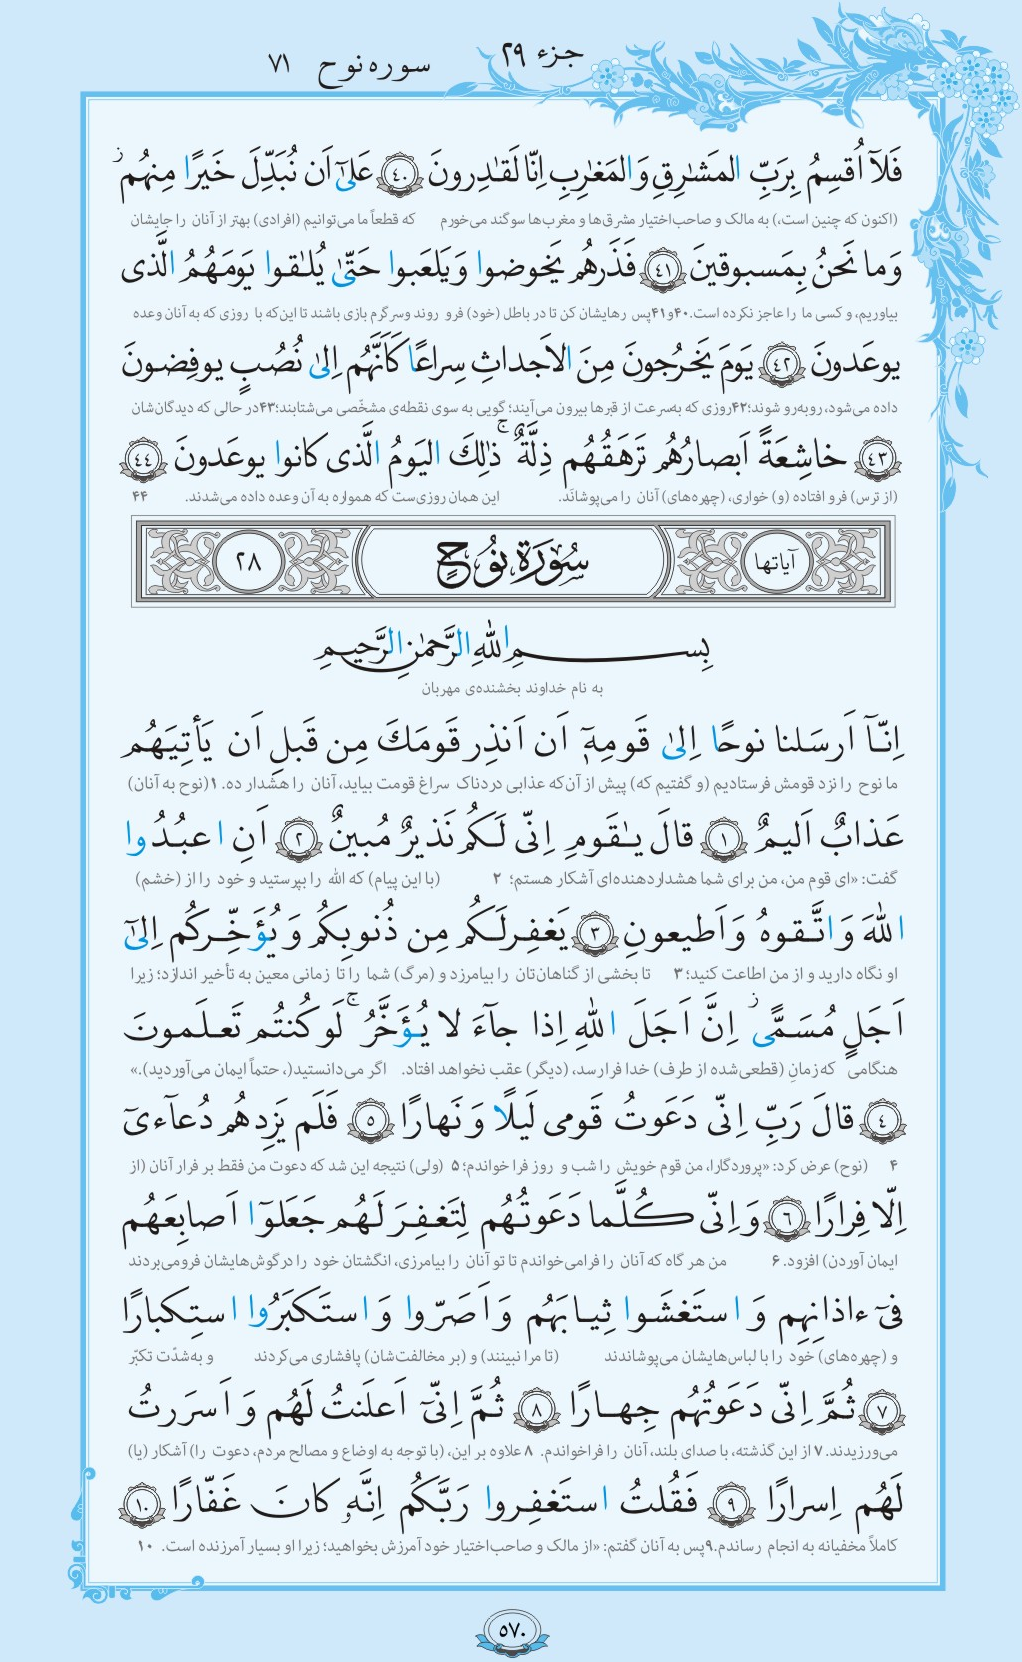 جزء ۲۹
سوره نوح ۷۱
فَلَآ اُقسِمُ بِرَبِّ المَشٰرِقِ وَ المَغٰرِبِ اِنّا لَقٰدِرونَ ﴿٤٠﴾ عَلىٰٓ اَن نُبَدِّلَ خَيرًا مِنهُم ۙ
(اکنون که چنین است،) به مالک و صاحب‌اختیار مشرق‌ها و مغرب‌ها سوگند می‌خورم که قطعاً ما می‌توانیم (افرادی) بهتر از آنان را جایشان
وَ ما نَحنُ بِمَسبوقينَ ﴿٤١﴾ فَذَرهُم يَخوضوا وَ يَلعَبوا حَتّىٰ يُلٰقوا يَومَهُمُ الَّذى
بیاوریم، و کسی ما را عاجز نکرده است. ۴۰و۴۱ پس رهایشان کن تا در باطل (خود) فرو روند وسرگرم بازی باشند تا این‌که با روزی که به آنان وعده
يوعَدونَ ﴿٤٢﴾ يَومَ يَخرُجونَ مِنَ الاَجداثِ سِراعًا كَاَنَّهُم اِلىٰ نُصُبٍ يوفِضونَ
داده می‌شود، روبه‌رو شوند؛ ۴۲ روزی که به‌سرعت از قبرها بیرون می‌آیند؛ گویی به سوی نقطه‌ی مشخّصی می‌شتابند؛ ۴۳ در حالی که دیدگان‌شان
﴿٤٣﴾ خاشِعَةً اَبصارُهُم تَرهَقُهُم ذِلَّةٌ ۚ ذٰلِكَ اليَومُ الَّذى كانوا يوعَدونَ ﴿٤٤﴾
(از ترس) فرو افتاده (و) خواری، (چهره‌های) آنان را می‌پوشاند. این همان روزی‌ست که همواره به آن وعده داده می‌شدند. ۴۴
آیاتها سُورَة نُوحٍ ۲۸
بِسـمِ اللّٰهِ الرَّحمٰنِ الرَّحيمِ
به نام خداوند بخشنده‌ی مهربان
اِنّـآ اَرسَلنا نوحًا اِلىٰ قَومِهٖٓ اَن اَنذِر قَومَكَ مِن قَبلِ اَن يَأتِيَهُم
ما نوح را نزد قومش فرستادیم (و گفتیم که) پیش از آن‌که عذابی دردناک سراغ قومت بیاید، آنان را هشدار ده. ۱ (نوح به آنان)
عَذابٌ اَليمٌ ﴿١﴾ قالَ يٰقَومِ اِنّى لَكُم نَذيرٌ مُبينٌ ﴿٢﴾ اَنِ اعبُدُوا
گفت: «ای قوم من، من برای شما هشداردهنده‌ای آشکار هستم؛ ۲ (با این پیام) که الله را بپرستید و خود را از (خشم)
اللّٰهَ وَ اتَّقوهُ وَ اَطيعونِ ﴿٣﴾ يَغفِر لَكُم مِن ذُنوبِكُم وَ يُؤَخِّركُم اِلىٰٓ
او نگاه دارید و از من اطاعت کنید؛ ۳ تا بخشی از گناهان‌تان را بیامرزد و (مرگ) شما را تا زمانی معین به تأخیر اندازد؛ زیرا
اَجَلٍ مُسَمًّى ۚ اِنَّ اَجَلَ اللّٰهِ اِذا جآءَ لا يُؤَخَّرُ ۚ لَو كُنتُم تَعلَمونَ
هنگامی که زمانِ (قطعی‌شده از طرف) خدا فرارسد، (دیگر) عقب نخواهد افتاد. اگر می‌دانستید(، حتماً ایمان می‌آوردید).»
﴿٤﴾ قالَ رَبِّ اِنّى دَعَوتُ قَومى لَيلًا وَ نَهارًا ﴿٥﴾ فَلَم يَزِدهُم دُعآءىٓ
۴ (نوح) عرض کرد: «پروردگارا، من قوم خویش را شب و روز فرا خواندم؛ ۵ (ولی) نتیجه این شد که دعوت من فقط بر فرار آنان (از
اِلّا فِرارًا ﴿٦﴾ وَ اِنّى كُلَّما دَعَوتُهُم لِتَغفِرَ لَهُم جَعَلوٓا اَصابِعَهُم
ایمان آوردن) افزود. ۶ من هر گاه که آنان را فرامی‌خواندم تا تو آنان را بیامرزی، انگشتان خود را در گوش‌هایشان فرومی‌بردند
فىٓ ءاذانِهِم وَ استَغشَوا ثِيابَهُم وَ اَصَرّوا وَ استَكبَرُوا استِكبارًا
و (چهره‌های) خود را با لباس‌هایشان می‌پوشاندند (تا مرا نبینند) و (بر مخالفت‌شان) پافشاری می‌کردند و به‌شدّت تکبّر
﴿٧﴾ ثُمَّ اِنّى دَعَوتُهُم جِهارًا ﴿٨﴾ ثُمَّ اِنّىٓ اَعلَنتُ لَهُم وَ اَسرَرتُ
می‌ورزیدند. ۷ از این گذشته، با صدای بلند، آنان را فراخواندم. ۸ علاوه بر این، (با توجه به اوضاع و مصالح مردم، دعوت را) آشکار (یا)
لَهُم اِسرارًا ﴿٩﴾ فَقُلتُ استَغفِروا رَبَّكُم اِنَّهٗ كانَ غَفّارًا ﴿١٠﴾
کاملاً مخفیانه به انجام رساندم. ۹ پس به آنان گفتم: «از مالک و صاحب‌اختیار خود آمرزش بخواهید؛ زیرا او بسیار آمرزنده است. ۱۰
۵۷۰